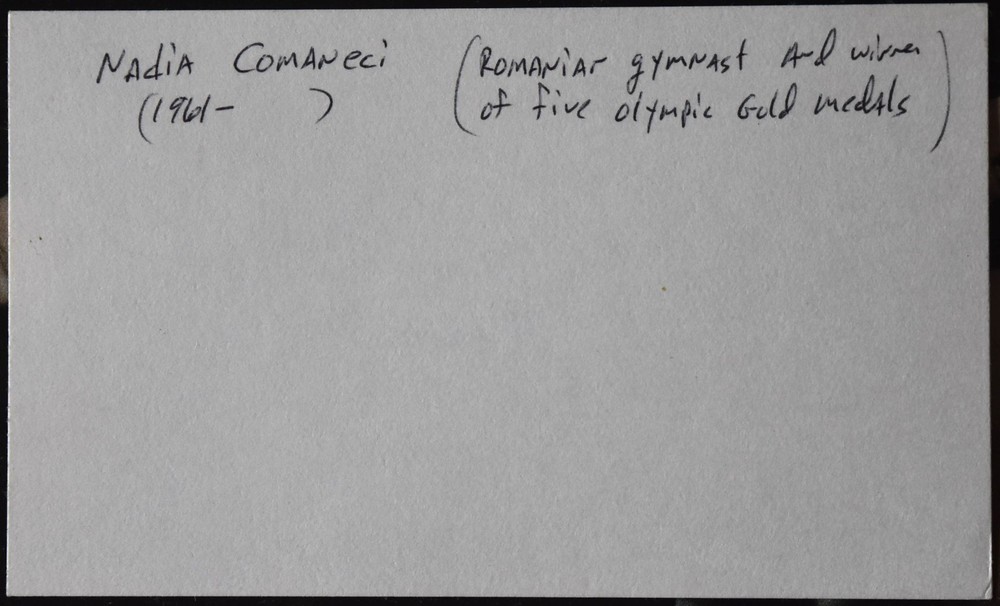 Nadia Comaneci (Romanian gymnast and winner
(1961- ) of five olympic Gold medals)